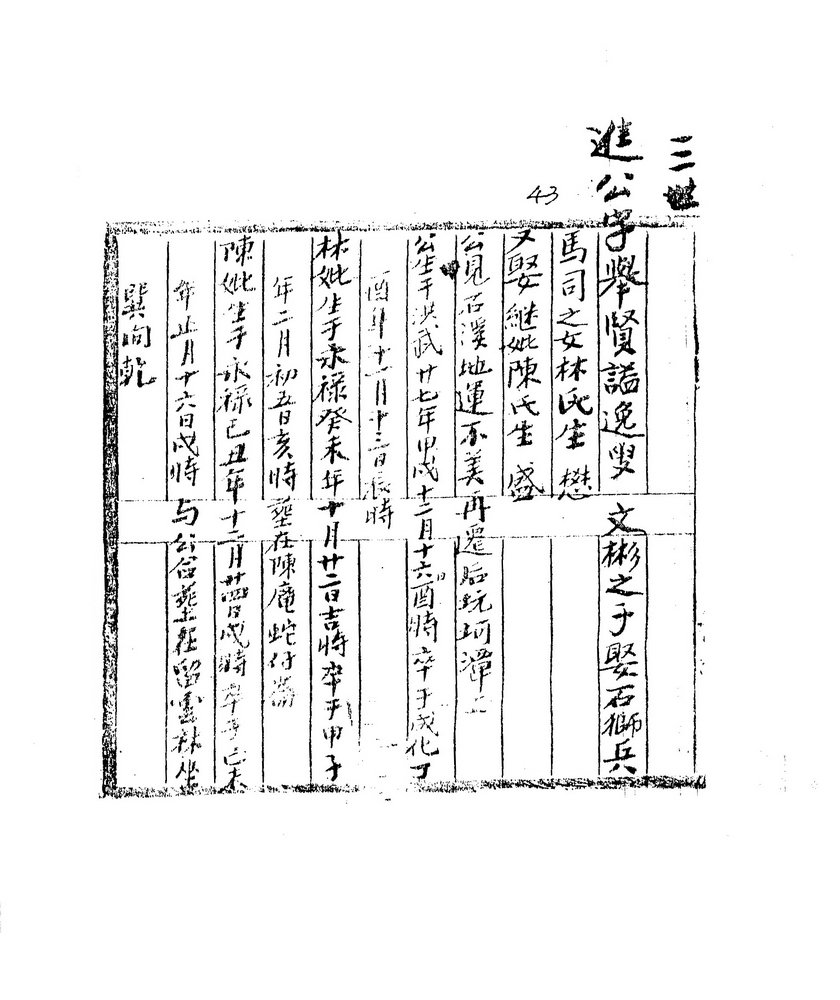 三世
進公字舉賢諡逸叟 文彬之子娶石獅兵
馬司之女林氏生 懋
又娶継妣陳氏生 盛
公見石溪地運不美再遷后坑坷潭上
公生于洪武廿七年甲戌十二月十六日酉時卒于成化丁
酉年十一月十三日辰時
林妣生于永禄癸未年十月廿二日吉時卒于甲子
年二月初五日亥時 塟在陳庵蛇仔崙
陳妣生于永禄己丑年十二月廿四日戌時卒于己未
年正月十六日戌時 与公合塟在留雲林坐
巽向乾
43